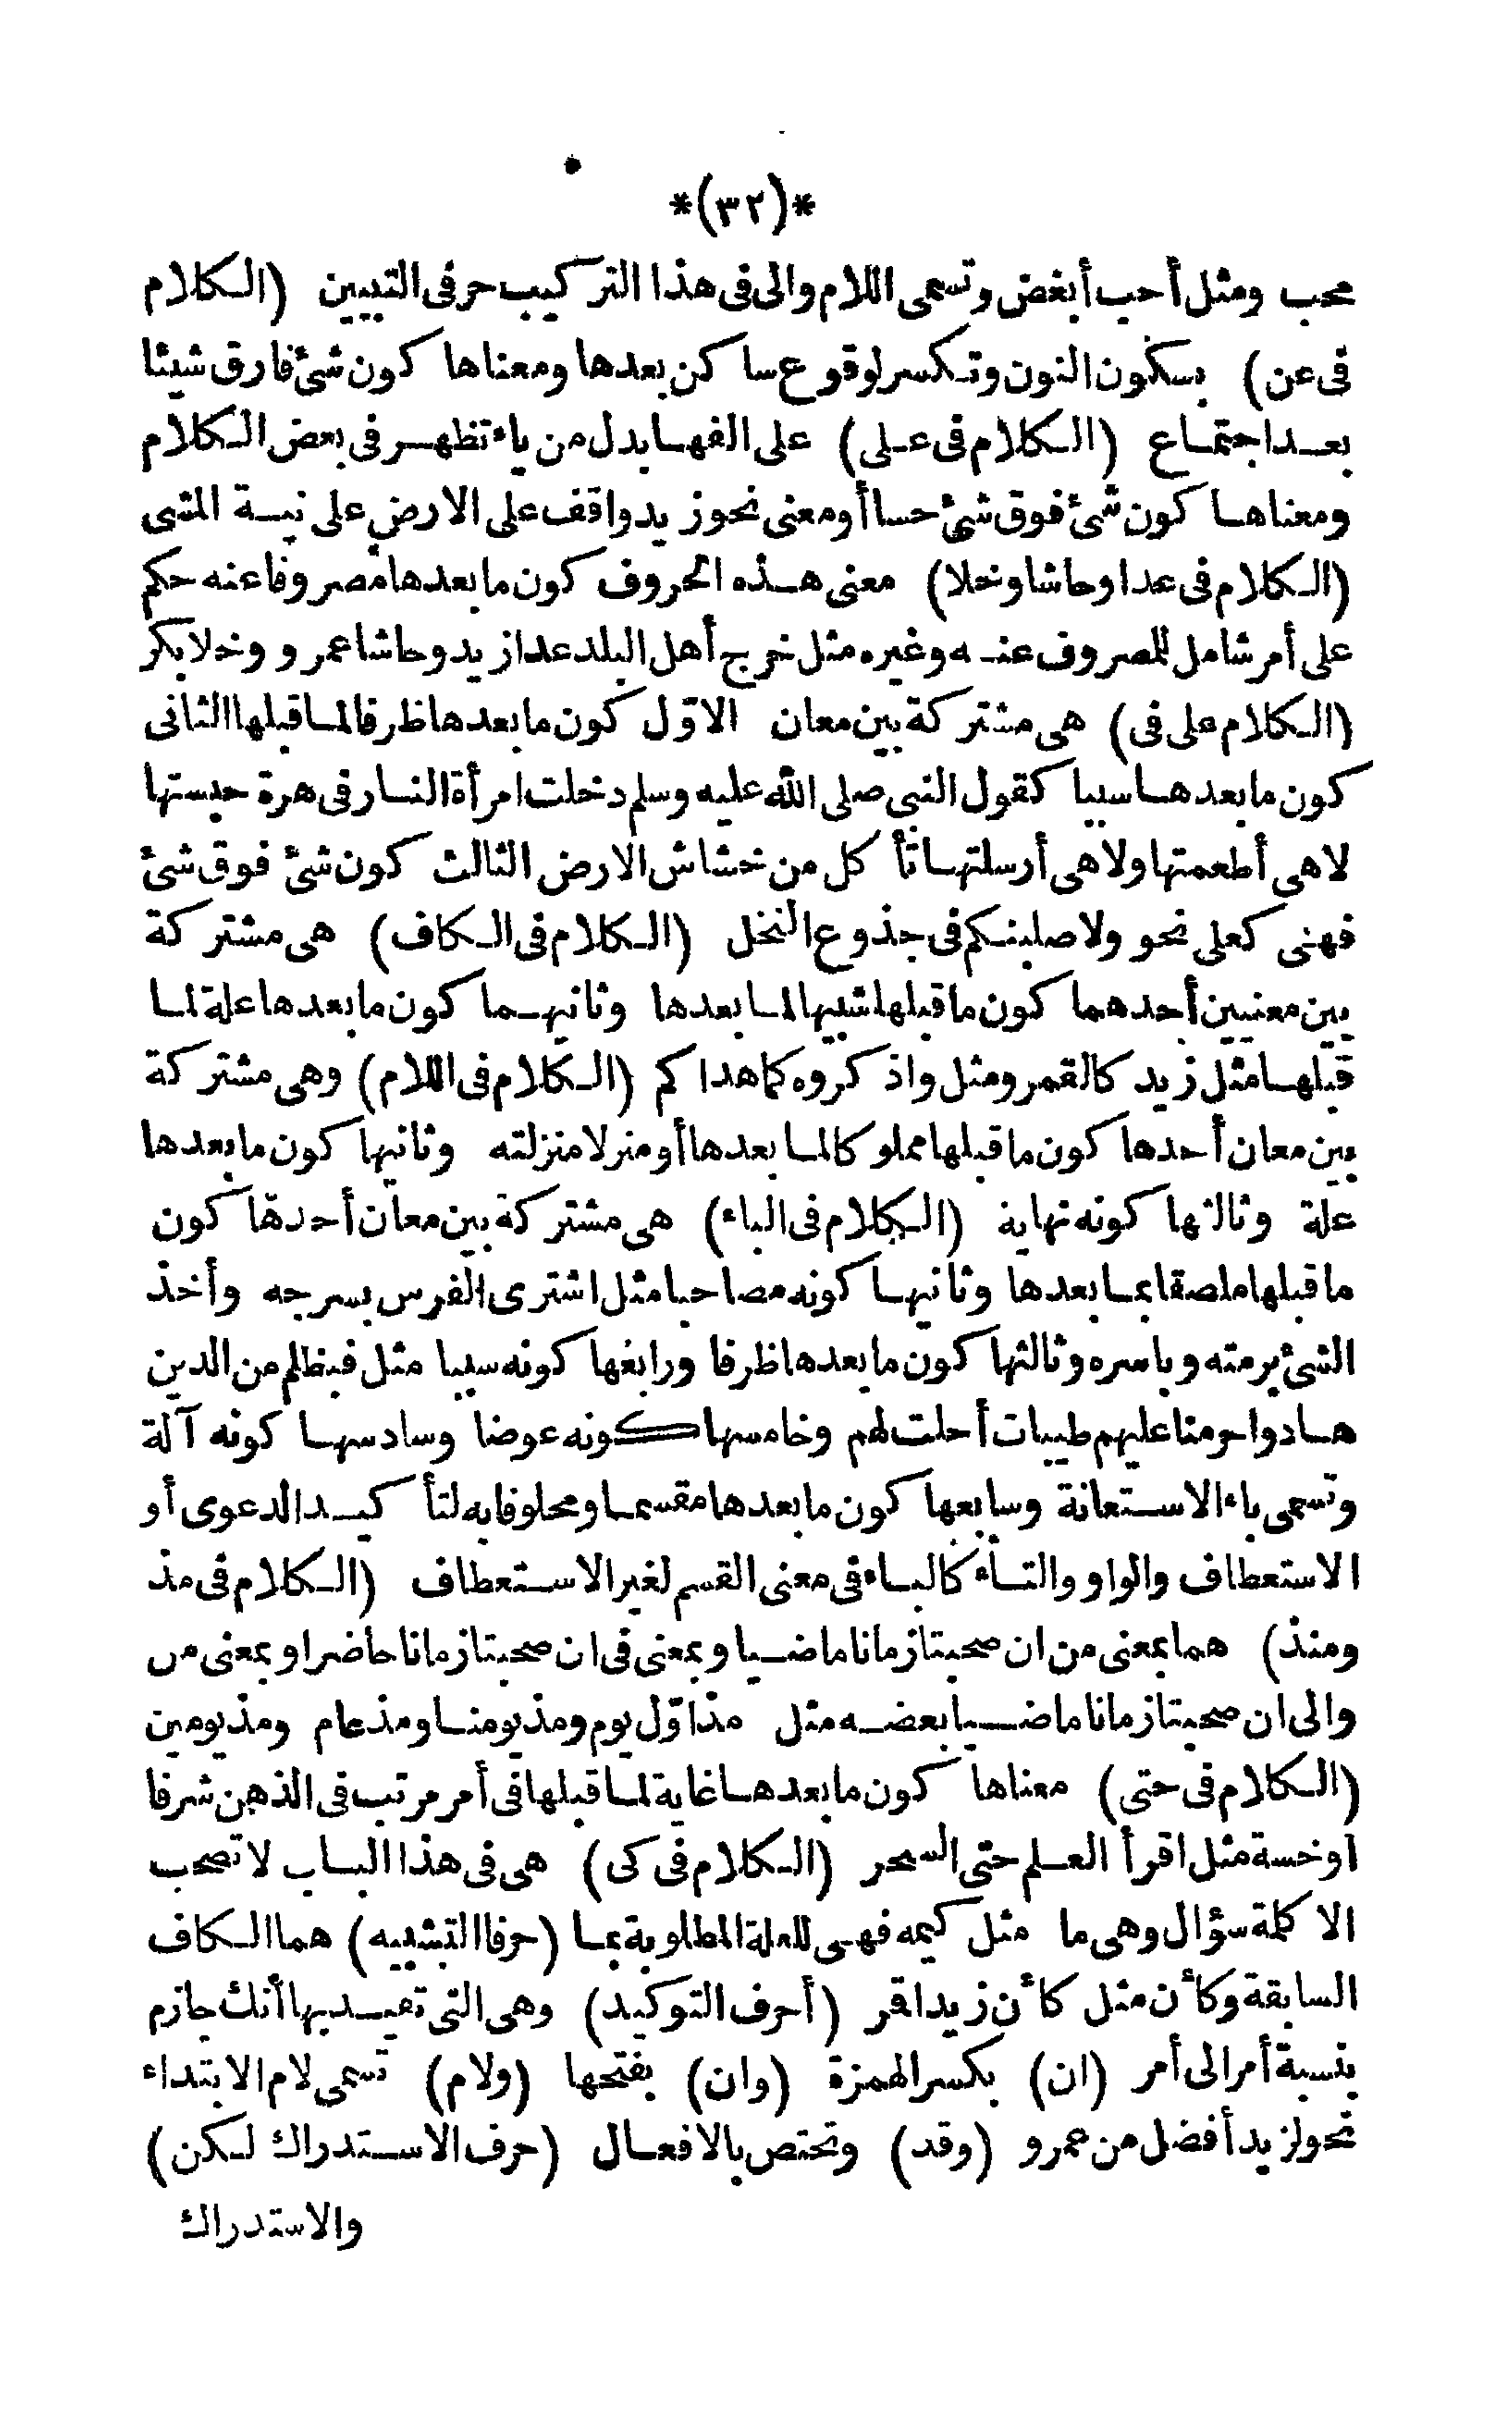 *(٣٢)*
محب ومثل أحب أبغض وتسمى اللام والى فى هذا التركيب حرفى التبيين (الكلام
فى عن) بسكون النون وتكسر لوقوع ساكن بعدها ومعناها كون شئ فارق شيئا
بعد اجتماع (الكلام فى على) على الفها بدل من ياء تظهر فى بعض الكلام
ومعناها كون شئ فوق شئ حسا أو معنى نحو زيد واقف على الارض على نية المشى
(الكلام فى عدا وحاشا وخلا) معنى هذه الحروف كون ما بعدها مصروفا عنه حكم
على أمر شامل للمصروف عنه وغيره مثل خرج أهل البلد عدا زيد وحاشا عمرو وخلا بكر
(الكلام على فى) هى مشتركة بين معان الاوّل كون ما بعدها ظرفا لما قبلها الثانى
كون ما بعدها سببا كقول النبى صلى الله عليه وسلم دخلت امرأة النار فى هرة حبستها
لا هى أطعمتها ولا هى أرسلتها تأكل من خشاش الارض الثالث كون شئ فوق شئ
فهنى كعلى نحو ولاصلبنكم فى جذوع النخل (الكلام فى الكاف) هى مشتركة
بين معنيين أحدهما كون ما قبلها شبيها لما بعدها وثانيهما كون ما بعدها علة لما
قبلها مثل زيد كالقمر ومثل واذكروه كما هداكم (الكلام فى اللام) وهى مشتركة
بين معان أحدها كون ما قبلها مملوكا لما بعدها أو منزلا منزلته وثانيها كون ما بعدها
علة وثالثها كونه نهاية (الكلام فى الباء) هى مشتركة بين معان أحدها كون
ما قبلها ملصقا بما بعدها وثانيها كونه مصاحبا مثل اشترى الفرس بسرجه وأخذ
الشئ برمته وباسره وثالثها كون ما بعدها ظرفا ورابعها كونه سببا مثل فبظلم من الذين
هادوا حرمنا عليهم طيبات أحلت لهم وخامسها كونه عوضا وسادسها كونه آلة
وتسمى باء الاستعانة وسابعها كون ما بعدها مقسما ومحلوفا به لتأكيد الدعوى أو
الاستعطاف والواو والتاء كالباء فى معنى القسم لغير الاستعطاف (الكلام فى مذ
ومنذ) هما بمعنى من ان صحبتا زمانا ماضيا وبمعنى فى ان صحبتا زمانا حاضرا وبمعنى من
والى ان صحبتا زمانا ماضيا بعضه مثل مذ اوّل يوم ومذ يومنا ومذ عام ومذ يومين
(الكلام فى حتى) معناها كون ما بعدها غاية لما قبلها فى أمر مرتب فى الذهن شرفا
أو خسة مثل اقرأ العلم حتى السحر (الكلام فى كى) هى فى هذا الباب لا تصحب
الا كلمة سؤال وهى ما مثل كيمه فهى للعلة المطلوبة بما (حرفا التشبيه) هما الكاف
السابقة وكأن مثل كأن زيدا قر (أحرف التوكيد) وهى التى تفيد بها أنك جازم
بنسبة أمر الى أمر (ان) بكسر الهمزة (وان) بفتحها (ولام) تسمى لام الابتداء
نحو لزيد أفضل من عمرو (وقد) وتختص بالافعال (حرف الاستدراك لكن)
والاستدراك